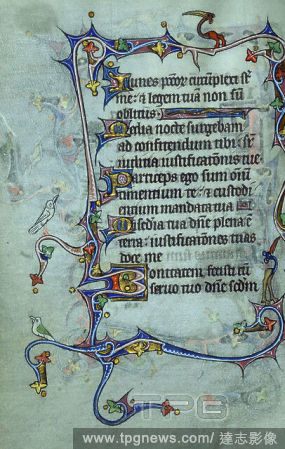 Funes pc̄c̄or̄ circūplexi sūt
me: ⁊ legem tuā non sū
oblitus
Media nocte surgebam
ad confitendum tibi: sup̄
iudicia iustificacōnis tue
Particeps ego sum oīū
timentium te: ⁊ custodi
entium mandata tua
Mis̄edīa tua dn̄e plena ē
terra: iustificacōnes tuas
doce me
Bonitatem fecisti cū
seruo tuo dn̄e sc̄dm
TPG
www.tpgnews.com/ 達志影像